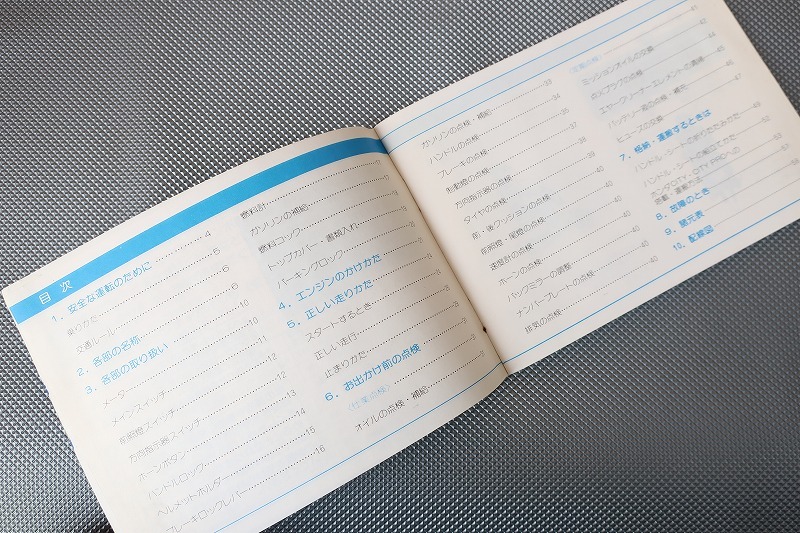 目次
1. 安全な運転のために 4
乗りかた 5
交通ルール 6
2. 各部の名称 6
3. 各部の取り扱い 10
メーター 10
メインスイッチ 11
前照燈スイッチ 12
方向指示器スイッチ 12
ホーンボタン 13
ハンドルロック 14
ヘルメットホルダー 15
ブレーキロックレバー 16
燃料計
ガソリンの補給
燃料コック
トップカバー・書類入れ
パーキングロック
4. エンジンのかけかた
5. 正しい走りかた
スタートするとき
正しい走行
止まりかた
6. お出かけ前の点検
〈仕業点検〉
オイルの点検・補給
ガソリンの点検・補給 33
ハンドルの点検 34
ブレーキの点検 35
制動燈の点検 37
方向指示器の点検 38
タイヤの点検 39
前・後クッションの点検 39
前照燈・尾燈の点検 40
速度計の点検 40
ホーンの点検 40
バックミラーの調整 40
ナンバープレートの点検 40
排気の点検 40
〈定期点検〉 41
ミッションオイルの交換 42
点火プラグの点検 44
エヤークリーナーエレメントの清掃 45
バッテリー液の点検・補充 46
ヒューズの交換 47
7. 格納・運搬するときは 49
ハンドル・シートの折りたたみかた 49
ハンドル・シートの組立てかた 52
ホンダCITY・CITY PROへの
搭載・運搬
8. 故障のとき
9. 諸元表
10. 配線図